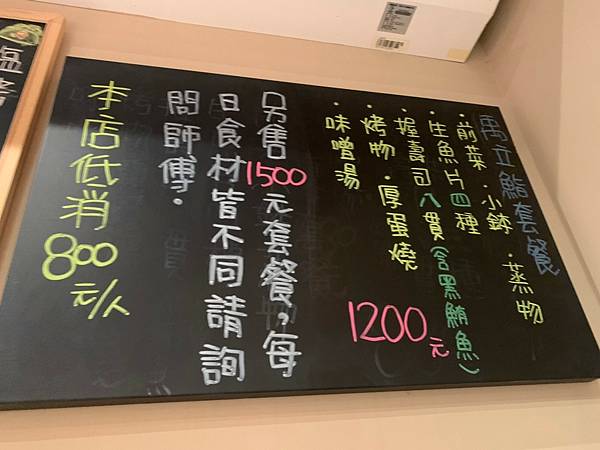 再立鮨套餐
·前菜·小鉢·蒸物
·生魚片四種
·握壽司八貫(含黑鮪魚)
·烤物·厚蛋燒
·味噌湯
1200元
另售1500元套餐,每
日食材皆不同請詢
問師傅.
本店低消800元/人